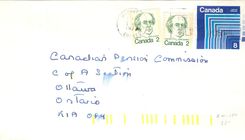 Canada 2
Canada 2
Canada
8
Canadian Pension Commission
C of A Section
Ottawa
Ontario
K1A 0P4